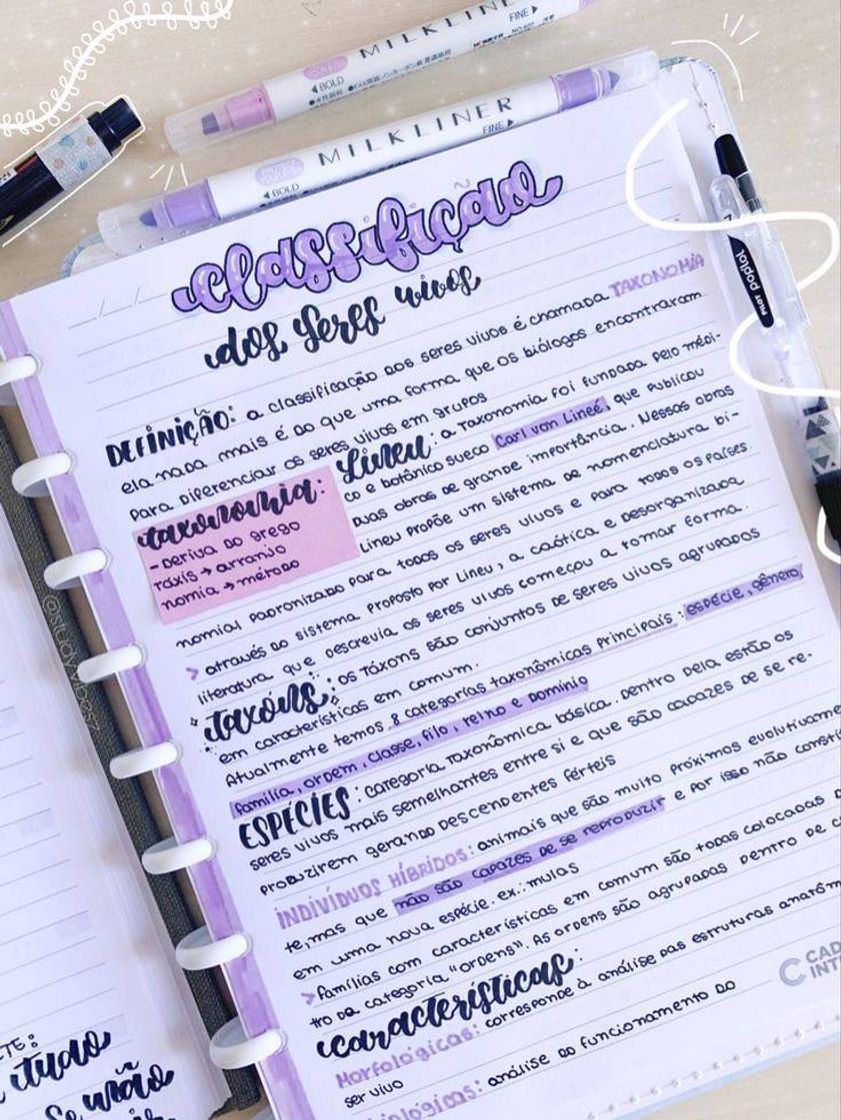 MILKLINER
FINE
BOLD
MILKLINER
FINE
BOLD
classificação
dos seres vivos
DEFINIÇÃO: a classificação dos seres vivos é chamada TAXONOMIA
ela nada mais é do que uma forma que os biólogos encontraram
para diferenciar os seres vivos em grupos
Lineu: a taxonomia foi fundada pelo médi-
co e botânico sueco Carl von Lineé, que publicou
duas obras de grande importância. Nessas obras
Lineu propõe um sistema de nomenclatura bi-
taxonomia:
- Deriva do grego
táxis → arranjo
nomia → método
nomial padronizado para todos os seres vivos e para todos os países
> através do sistema proposto por Lineu, a caótica e desorganizada
literatura que descrevia os seres vivos começou a tomar forma.
táxons: os táxons são conjuntos de seres vivos agrupados
em características em comum.
Atualmente temos 8 categorias taxonômicas principais: espécie, gênero,
família, ordem, classe, filo, reino e domínio
ESPÉCIES: categoria taxonômica básica. Dentro dela estão os
seres vivos mais semelhantes entre si e que são capazes de se re-
produzirem gerando descendentes férteis
INDIVÍDUOS HÍBRIDOS: animais que são muito próximos evolutivame
te, mas que não são capazes de se reproduzir e por isso não consti
em uma nova espécie. ex.: mulas
> famílias com características em comum são todas colocadas
tro da categoria "ordens". As ordens são agrupadas dentro de c
características:
Morfológicas: corresponde à análise das estruturas anatôm
ser vivo
iológicas: análise do funcionamento do
CAD
INTE
PILOT poplol
@studyvibesz
ETE: